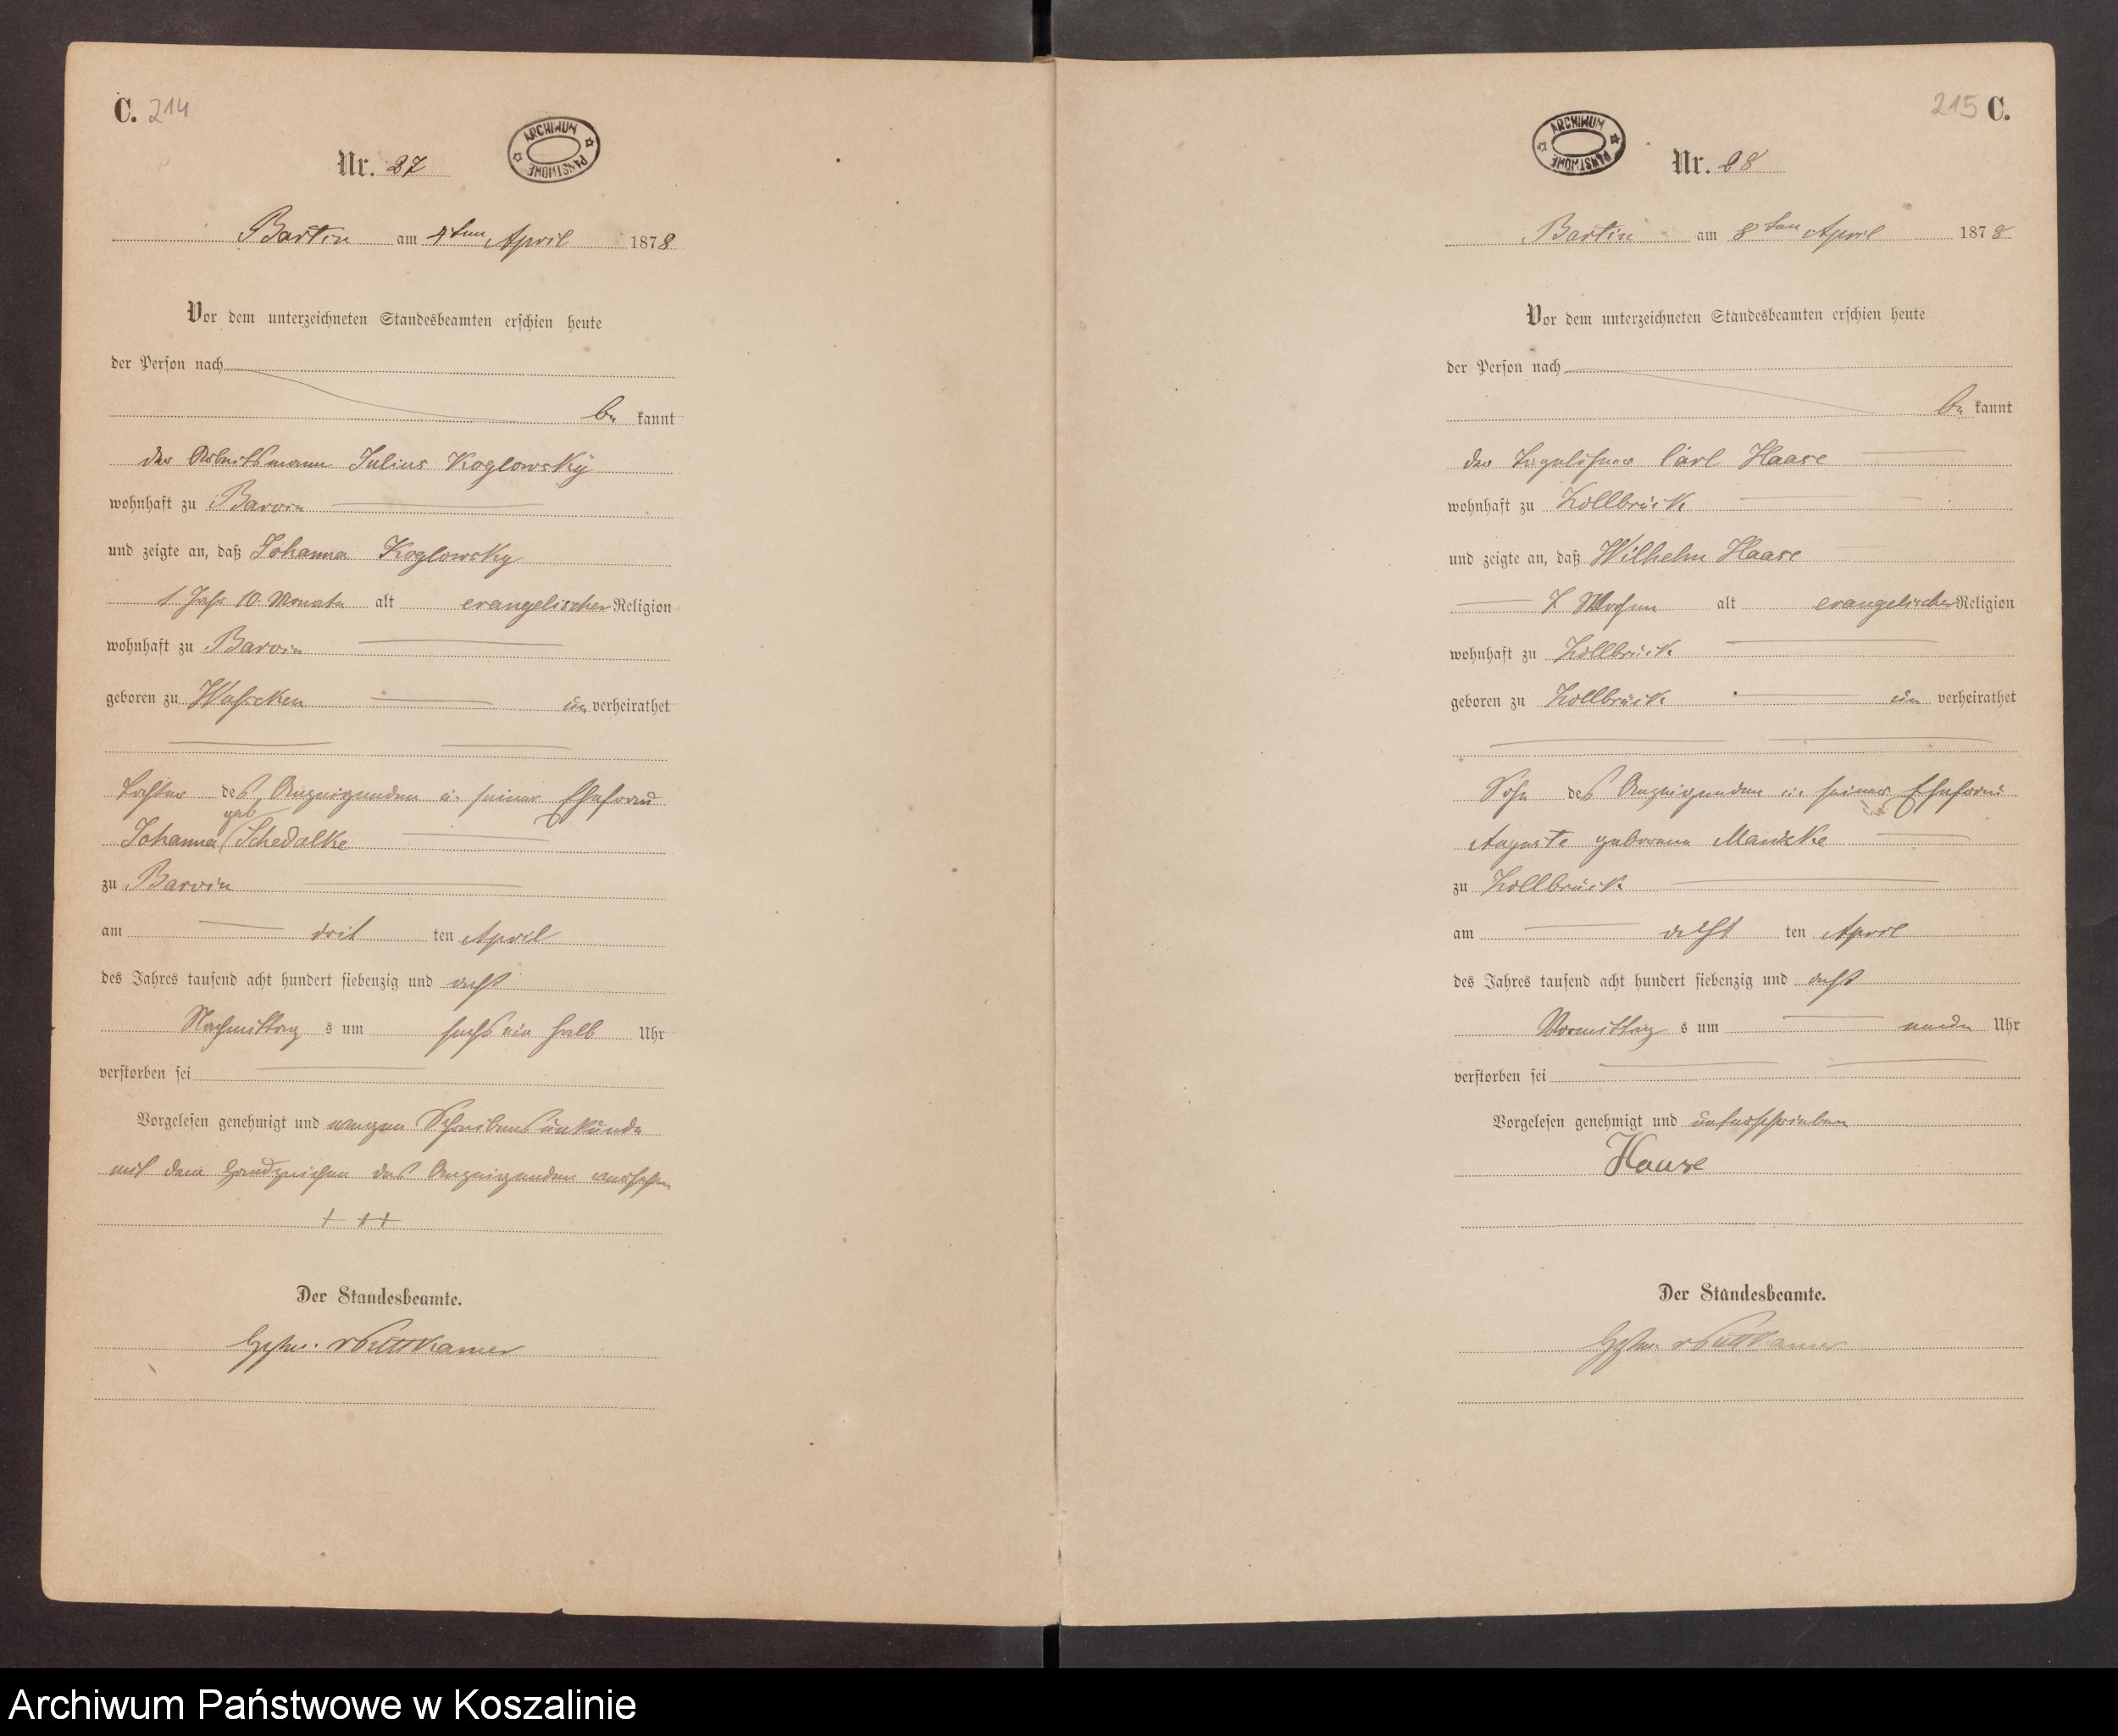 C. 214
ARCHIWUM PAŃSTWOWE
Nr. 27
Bartin am 4ten April 1878
Vor dem unterzeichneten Standesbeamten erschien heute
der Person nach
be kannt
der Arbeitsmann Julius Koglowsky
wohnhaft zu Barvin
und zeigte an, daß Johanna Koglowsky
1 Jahr 10 Monate alt evangelischer Religion
wohnhaft zu Barvin
geboren zu un verheirathet
Tochter des Anzeigenden u. seiner Ehefrau
Johanna geb Schedalke
zu Barvin
am drit ten April
des Jahres tausend acht hundert siebenzig und acht
Nachmittag s um sechs ein halb Uhr
verstorben sei
Vorgelesen genehmigt und wegen Schreibensunkunde
mit dem Handzeichen des Anzeigenden versehen
+ ++
Der Standesbeamte.
v Puttkamer
215 C.
ARCHIWUM PAŃSTWOWE
Nr. 28
Bartin am 8ten April 1878
Vor dem unterzeichneten Standesbeamten erschien heute
der Person nach
be kannt
der Tagelöhner Carl Haase
wohnhaft zu Zollbrück
und zeigte an, daß Wilhelm Haase
7 Wochen alt evangelischer Religion
wohnhaft zu Zollbrück
geboren zu Zollbrück un verheirathet
Sohn des Anzeigenden u. seiner Ehefrau
Auguste geborene Manzke
zu Zollbrück
am acht ten April
des Jahres tausend acht hundert siebenzig und acht
Vormittag s um neun Uhr
verstorben sei
Vorgelesen genehmigt und unterschrieben
Haase
Der Standesbeamte.
v Puttkamer
Archiwum Państwowe w Koszalinie